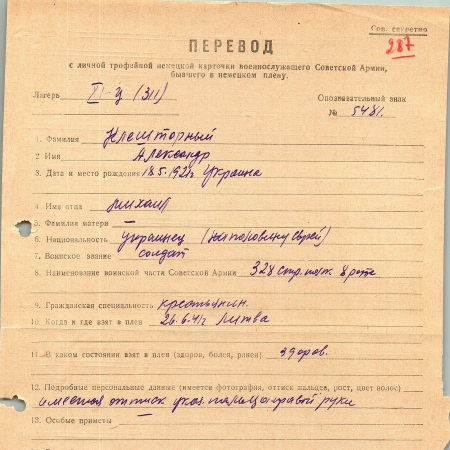 Сов. секретно
287
ПЕРЕВОД
с личной трофейной немецкой карточки военнослужащего Советской Армии,
бывшего в немецком плену.
Лагерь XI-Ц (311)
Опознавательный знак
№ 5481.
1. Фамилия Клешторный
2 Имя Александр
3. Дата и место рождения 18.5.1921г Украина
4. Имя отца Михаил
5. Фамилия матери —
6. Национальность украинец (наполовину еврей)
7. Воинское звание солдат
8. Наименование воинской части Советской Армии 328 стр. полк 8 рота
9. Гражданская специальность крестьянин.
10. Когда и где взят в плен 26.6.41г Литва
11. В каком состоянии взят в плен (здоров, болен, ранен) здоров.
12. Подробные персональные данные (имеется фотография, оттиск пальцев, рост, цвет волос)
имеется оттиск указ. пальца правой руки
13. Особые приметы